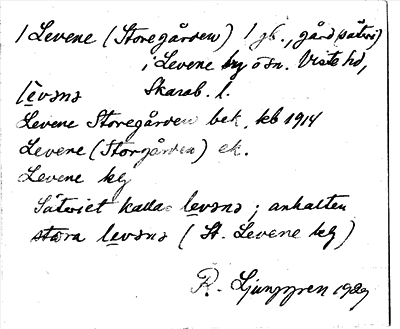 1 Levene (Storegården) 1 gb., gård (säteri)
i Levene by o sn. Viste hd,
lèvənə Skarab. l.
Levene Storegården bek. kb 1914
Levene (Storgården) ek.
Levene kg
Säteriet kallas levənə ; anhalten
stora levənə (St. Levene kg)
R. Ljunggren 1929